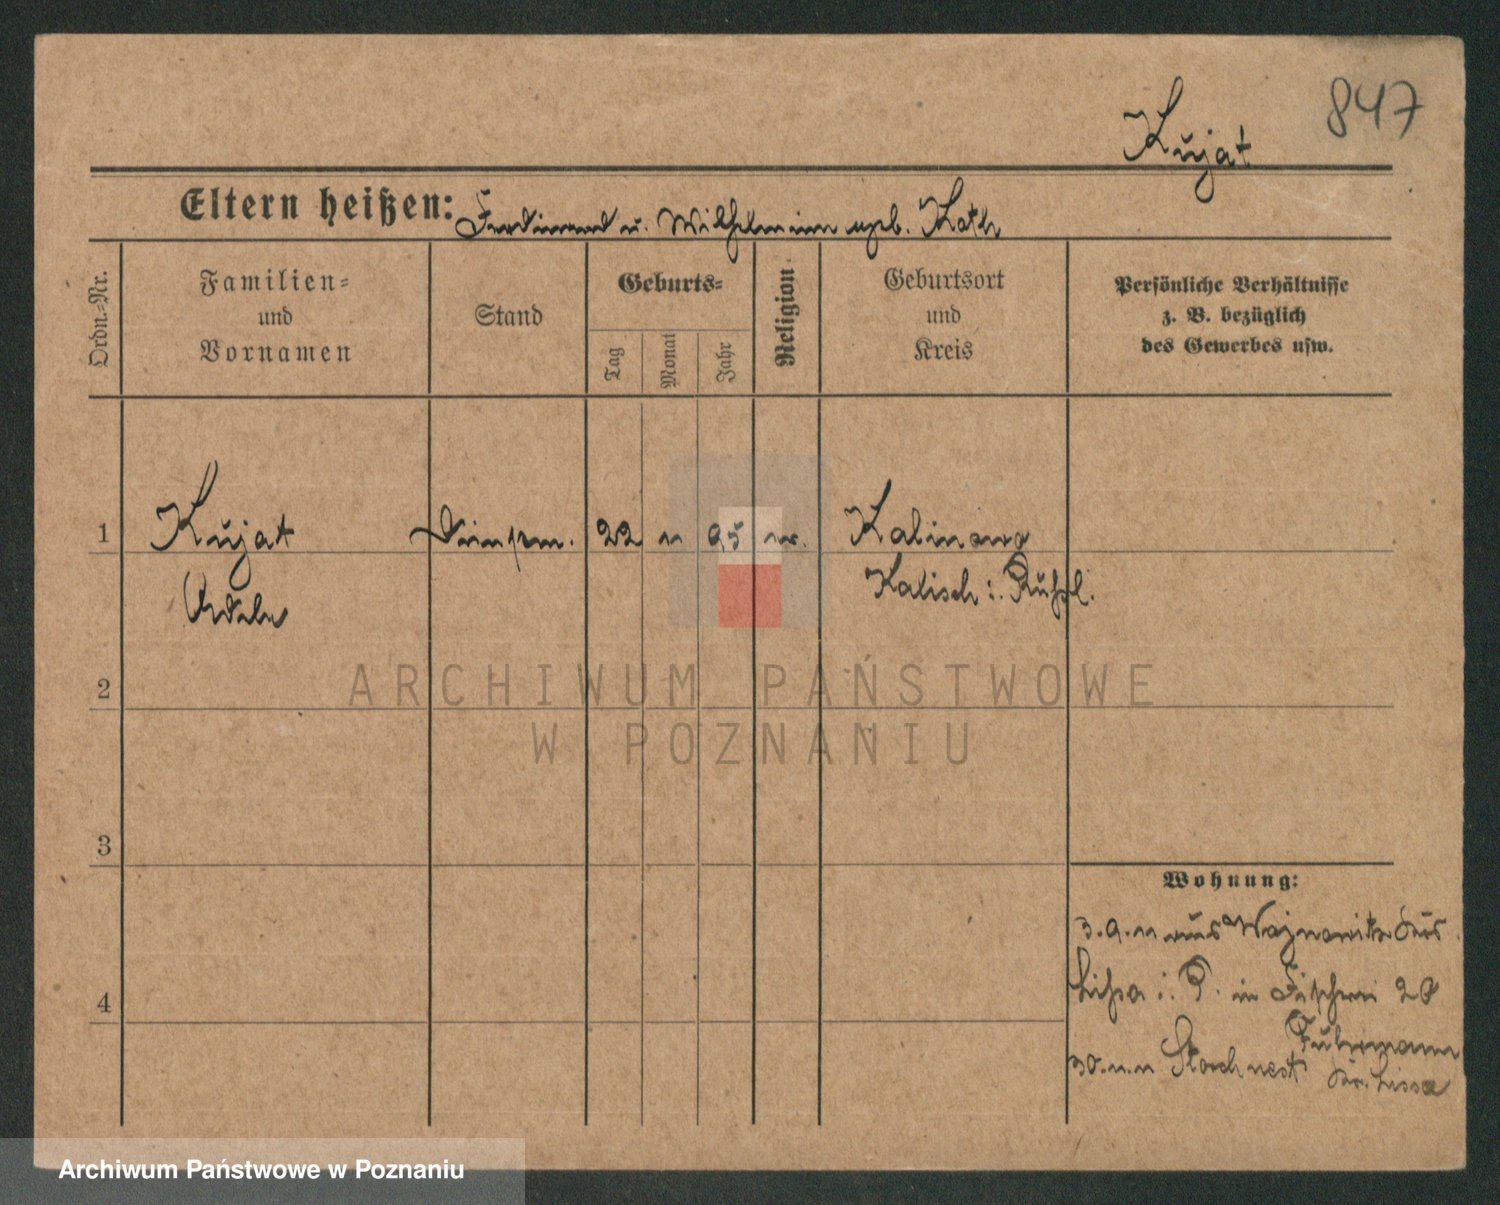 847
Kujat
Eltern heißen: Ferdinand u. Wilhelmine geb. Koth
Ordn.-Nr.
Familien-
und
Vornamen
Stand
Geburts-
Tag
Monat
Jahr
Religion
Geburtsort
und
Kreis
Persönliche Verhältnisse
z. B. bezüglich
des Gewerbes usw.
1 Kujat 22 11 95 Kalinowo
Adele Kalisch i. Rußl.
ARCHIWUM PAŃSTWOWE
W POZNANIU
2
3
4
Wohnung:
3. 9. 11 aus
Lissa i. P. in Fischerei 20
Fuhrmann
30. 11. 11 Storchnest Kr. Lissa
Archiwum Państwowe w Poznaniu